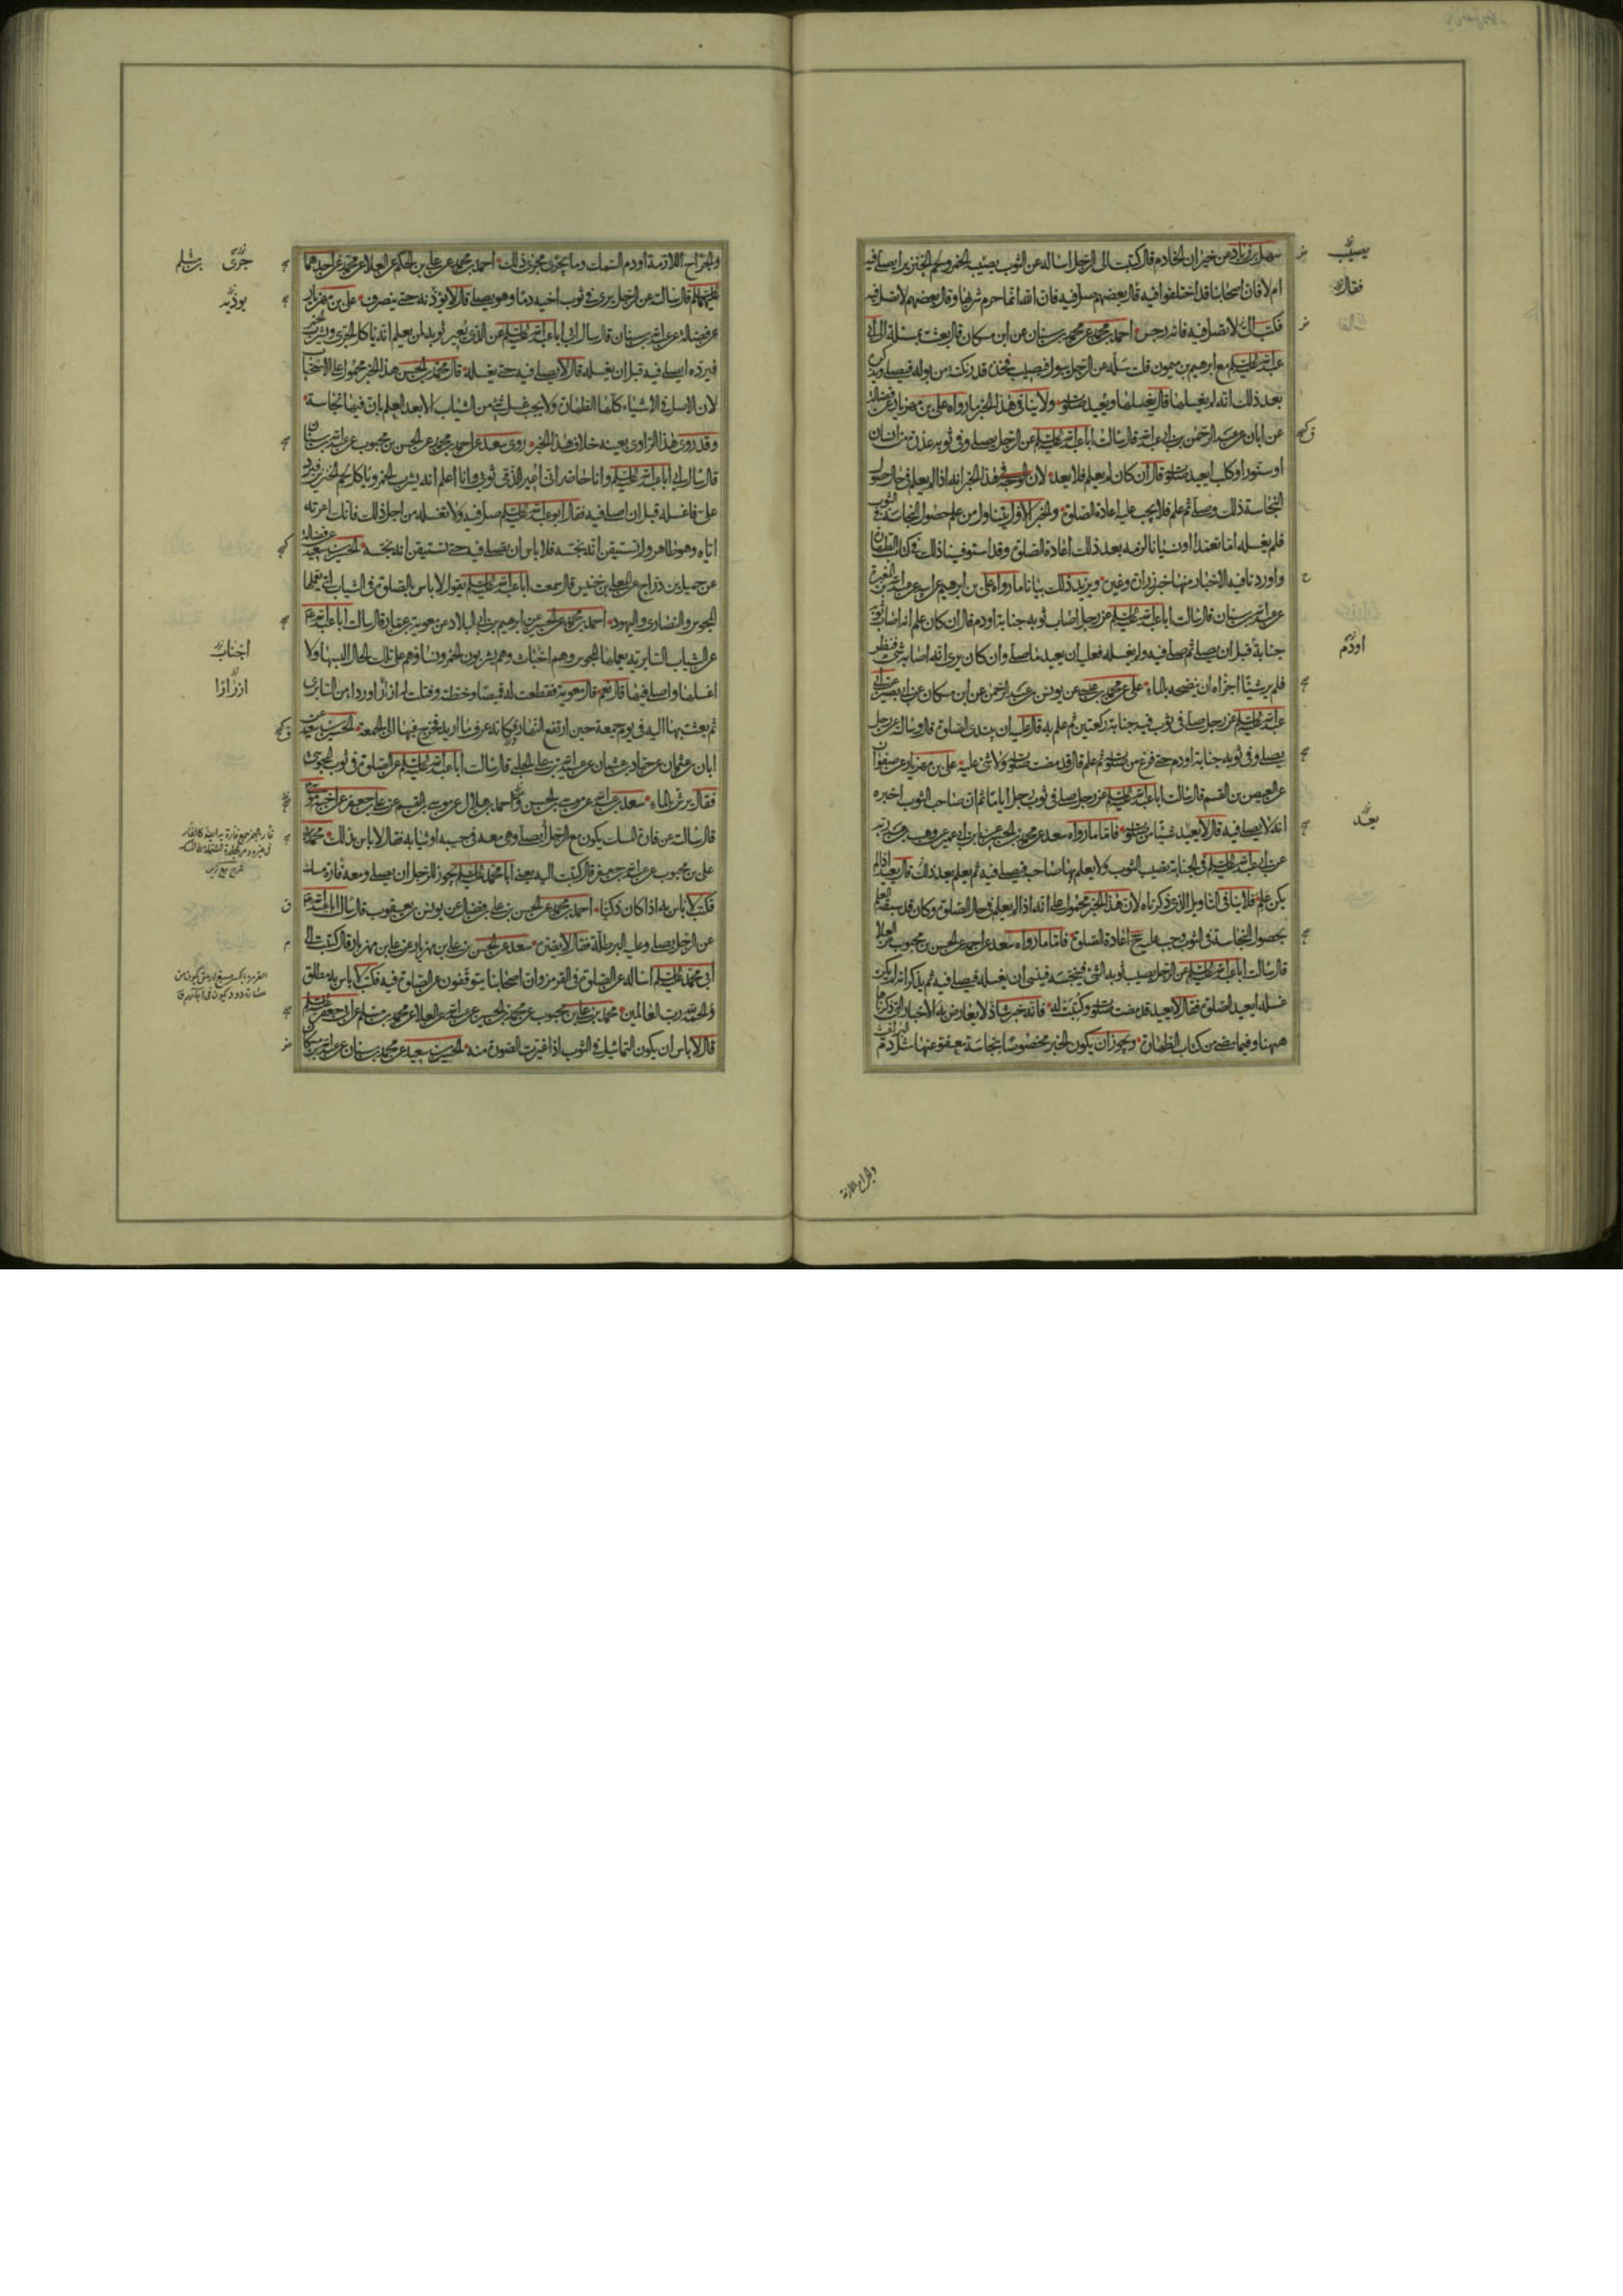 سهل بن زياد عن خيران الخادم قال كتبت الى الرجل اساله عن الثوب يصيب الخمر ولحم الخنزير ايصلى فيه
ام لا فان اصحابنا قد اختلفوا فيه فقال بعضهم صل فيه فان الله انما حرم شربها وقال بعضهم لا تصل فيه
فكتب لا تصل فيه فانه رجس احمد بن محمد عن محمد بن سنان عن ابن مسكان قال بعثت بمسئلة الى ابي
عبد الله عليه السلم مع ابرهيم بن ميمون قلت سله عن الرجل يبول فيصيب فخذه قدر نكتة من بوله فيصلى ويذكر
بعد ذلك انه لم يغسلها قال يغسلها ويعيد صلوته ولا ينافى هذا الخبر ما رواه على بن مهزيار عن فضالة
عن ابان عن عبد الرحمن بن ابي عبد الله قال سالت ابا عبد الله عليه السلم عن الرجل يصلى وفى ثوبه عذرة من انسان
او سنور او كلب ايعيد صلوته قال ان كان لم يعلم فلا يعيد لان الوجه فى هذا الخبر انه اذا لم يعلم فى حال حصول
النجاسة ذلك وصلى ثم علم فلا يجب عليه اعادة الصلوة والخبر الاول يتناول من علم حصول النجاسة فى الثوب
فلم يغسله اما تعمدا او نسيانا لزمه بعد ذلك اعادة الصلوة وقد استوفينا ذلك فى كتاب الطهارة
واوردنا فيه الاخبار منها خبر زرارة وغيره ويزيد ذلك بيانا ما رواه على بن ابرهيم عن ابيه عن عبد الله بن المغيرة
عن عبد الله بن سنان قال سالت ابا عبد الله عليه السلم عن رجل اصاب ثوبه جنابة او دم قال ان كان علم انه اصاب ثوبه
جنابة قبل ان يصلى ثم صلى فيه ولم يغسله فعليه ان يعيد ما صلى وان كان يرى انه اصابه شئ فنظر
فلم ير شيئا اجزاه ان ينضحه بالماء على عن محمد بن عيسى عن يونس بن عبد الرحمن عن ابن مسكان عن ابي بصير عن ابي
عبد الله عليه السلم عن رجل صلى فى ثوب فيه جنابة ركعتين ثم علم به قال عليه ان يبتدئ الصلوة قال وسالته عن رجل
يصلى وفى ثوبه جنابة او دم حتى فرغ من صلوته ثم علم قال قد مضت صلوته ولا شئ عليه على بن مهزيار عن صفوان
عن العيص بن القسم قال سالت ابا عبد الله عليه السلم عن رجل صلى فى ثوب رجل اياما ثم ان صاحب الثوب اخبره
انه لا يصلى فيه قال لا يعيد شيئا من صلوته فاما ما رواه سعد عن محمد بن الحسين عن ابن ابي عمير عن وهب بن عبد ربه
عن ابي عبد الله عليه السلم فى الجنابة تصيب الثوب ولا يعلم بها صاحبه فيصلى فيه ثم يعلم بعد ذلك قال يعيد اذا لم
يكن علم فلا ينافى التاويل الذى ذكرناه لان هذا الخبر محمول على انه اذا لم يعلم فى حال الصلوة وكان قد سبقه العلم
بحصول النجاسة فى الثوب وجب عليه ح اعادة الصلوة فاما ما رواه سعد عن احمد عن الحسن بن محبوب عن العلا
قال سالت ابا عبد الله عليه السلم عن الرجل يصيب ثوبه الشئ فينجسه فينسى ان يغسله فيصلى فيه ثم يذكر انه لم يكن
غسله ايعيد الصلوة فقال لا يعيد قد مضت صلوته وكتبت له فانه خبر شاذ لا يعارض به الاخبار التى ذكرناها
ههنا وفيما مضى من كتاب الطهارة ويجوز ان يكون الخبر مخصوصا بنجاسة معفو عنها مثل دم البراغيث
يصيب
فقال
او دم
يعد
والجراح اللازمة
والجراح اللازمة او دم السمك وما يجرى مجرى ذلك احمد بن محمد عن على بن الحكم عن العلا عن محمد عن احدهما
عليهما السلم قال سالته عن الرجل يرى فى ثوب اخيه دما وهو يصلى قال لا يؤذنه حتى ينصرف على بن مهزيار
عن فضالة عن عبد الله بن سنان قال سال ابي ابا عبد الله عليه السلم عن الذى يعير ثوبه لمن يعلم انه ياكل الجرى ويشرب الخمر
فيرده ايصلى فيه قبل ان يغسله قال لا يصلى فيه حتى يغسله قال محمد بن الحسن هذا الخبر محمول على الاستحباب
لان الاصل فى الاشياء كلها الطهارة ولا يجب غسل شئ من الثياب الا بعد العلم بان فيها نجاسة
وقد روى هذا الراوى بعينه خلاف هذا الخبر روى سعد عن احمد بن محمد عن الحسن بن محبوب عن عبد الله بن سنان
قال سال ابي ابا عبد الله عليه السلم وانا حاضر انى اعير الذمى ثوبى وانا اعلم انه يشرب الخمر وياكل لحم الخنزير فيرد
على فاغسله قبل ان اصلى فيه فقال ابو عبد الله عليه السلم صل فيه ولا تغسله من اجل ذلك فانك اعرته
اياه وهو طاهر ولم تستيقن انه نجسه فلا باس ان تصلى فيه حتى تستيقن انه نجسه الحسين بن سعيد عن فضالة
عن جميل بن دراج عن المعلى بن خنيس قال سمعت ابا عبد الله عليه السلم يقول لا باس بالصلوة فى الثياب التى يعملها
المجوس والنصارى واليهود احمد بن محمد عن الحسن عن ابرهيم بن ابي البلاد عن معوية بن عمار قال سالت ابا عبد الله ع
عن الثياب السابرية يعملها المجوس وهم اخباث وهم يشربون الخمر ونساؤهم على تلك الحال البسها ولا
اغسلها واصلى فيها قال نعم قال معوية فقطعت له قميصا وخطته وفتلت له ازرارا ورداء من السابرى
ثم بعثت بها اليه فى يوم جمعة حين ارتفع النهار فكانه عرف ما اريد فخرج فيها الى الجمعة الحسين بن سعيد عن
ابان بن عثمان عن حماد بن عثمان عن عبيد الله بن على الحلبى قال سالت ابا عبد الله عليه السلم عن الصلوة فى ثوب المجوسى
فقال يرش بالماء سعد بن عبد الله عن موسى بن الحسن واحمد بن هلال عن موسى بن القسم عن على بن جعفر عن اخيه موسى
قال سالته عن فارة المسك يكون مع الرجل ايصلى وهى معه فى جيبه او ثيابه فقال لا باس بذلك محمد بن
على بن محبوب عن عبد الله بن جعفر قال كتبت اليه يعنى ابا محمد عليه السلم يجوز للرجل ان يصلى ومعه فارة مسك
فكتب لا باس به اذا كان ذكيا احمد بن محمد عن الحسن بن على بن فضال عن يونس بن يعقوب قال سالت ابا عبد الله ع
عن الرجل يصلى وعليه البرطلة فقال لا يضره سعد عن الحسن بن على بن مهزيار عن على بن مهزيار قال كتبت الى
ابي محمد عليه السلم اساله عن الصلوة فى القرمز وان اصحابنا يتوقفون عن الصلوة فيه فكتب لا باس به مطلق
والحمد لله رب العالمين محمد بن على بن محبوب عن محمد بن الحسين عن عبد الله عن العلا عن محمد بن مسلم عن ابي جعفر عليه السلم
قال لا باس ان يكون التماثيل فى الثوب اذا غيرت الصورة منه الحسين بن سعيد عن محمد بن سنان عن عبد الله بن مسكان
جرى
يؤذيه
اجناب
ازرارا